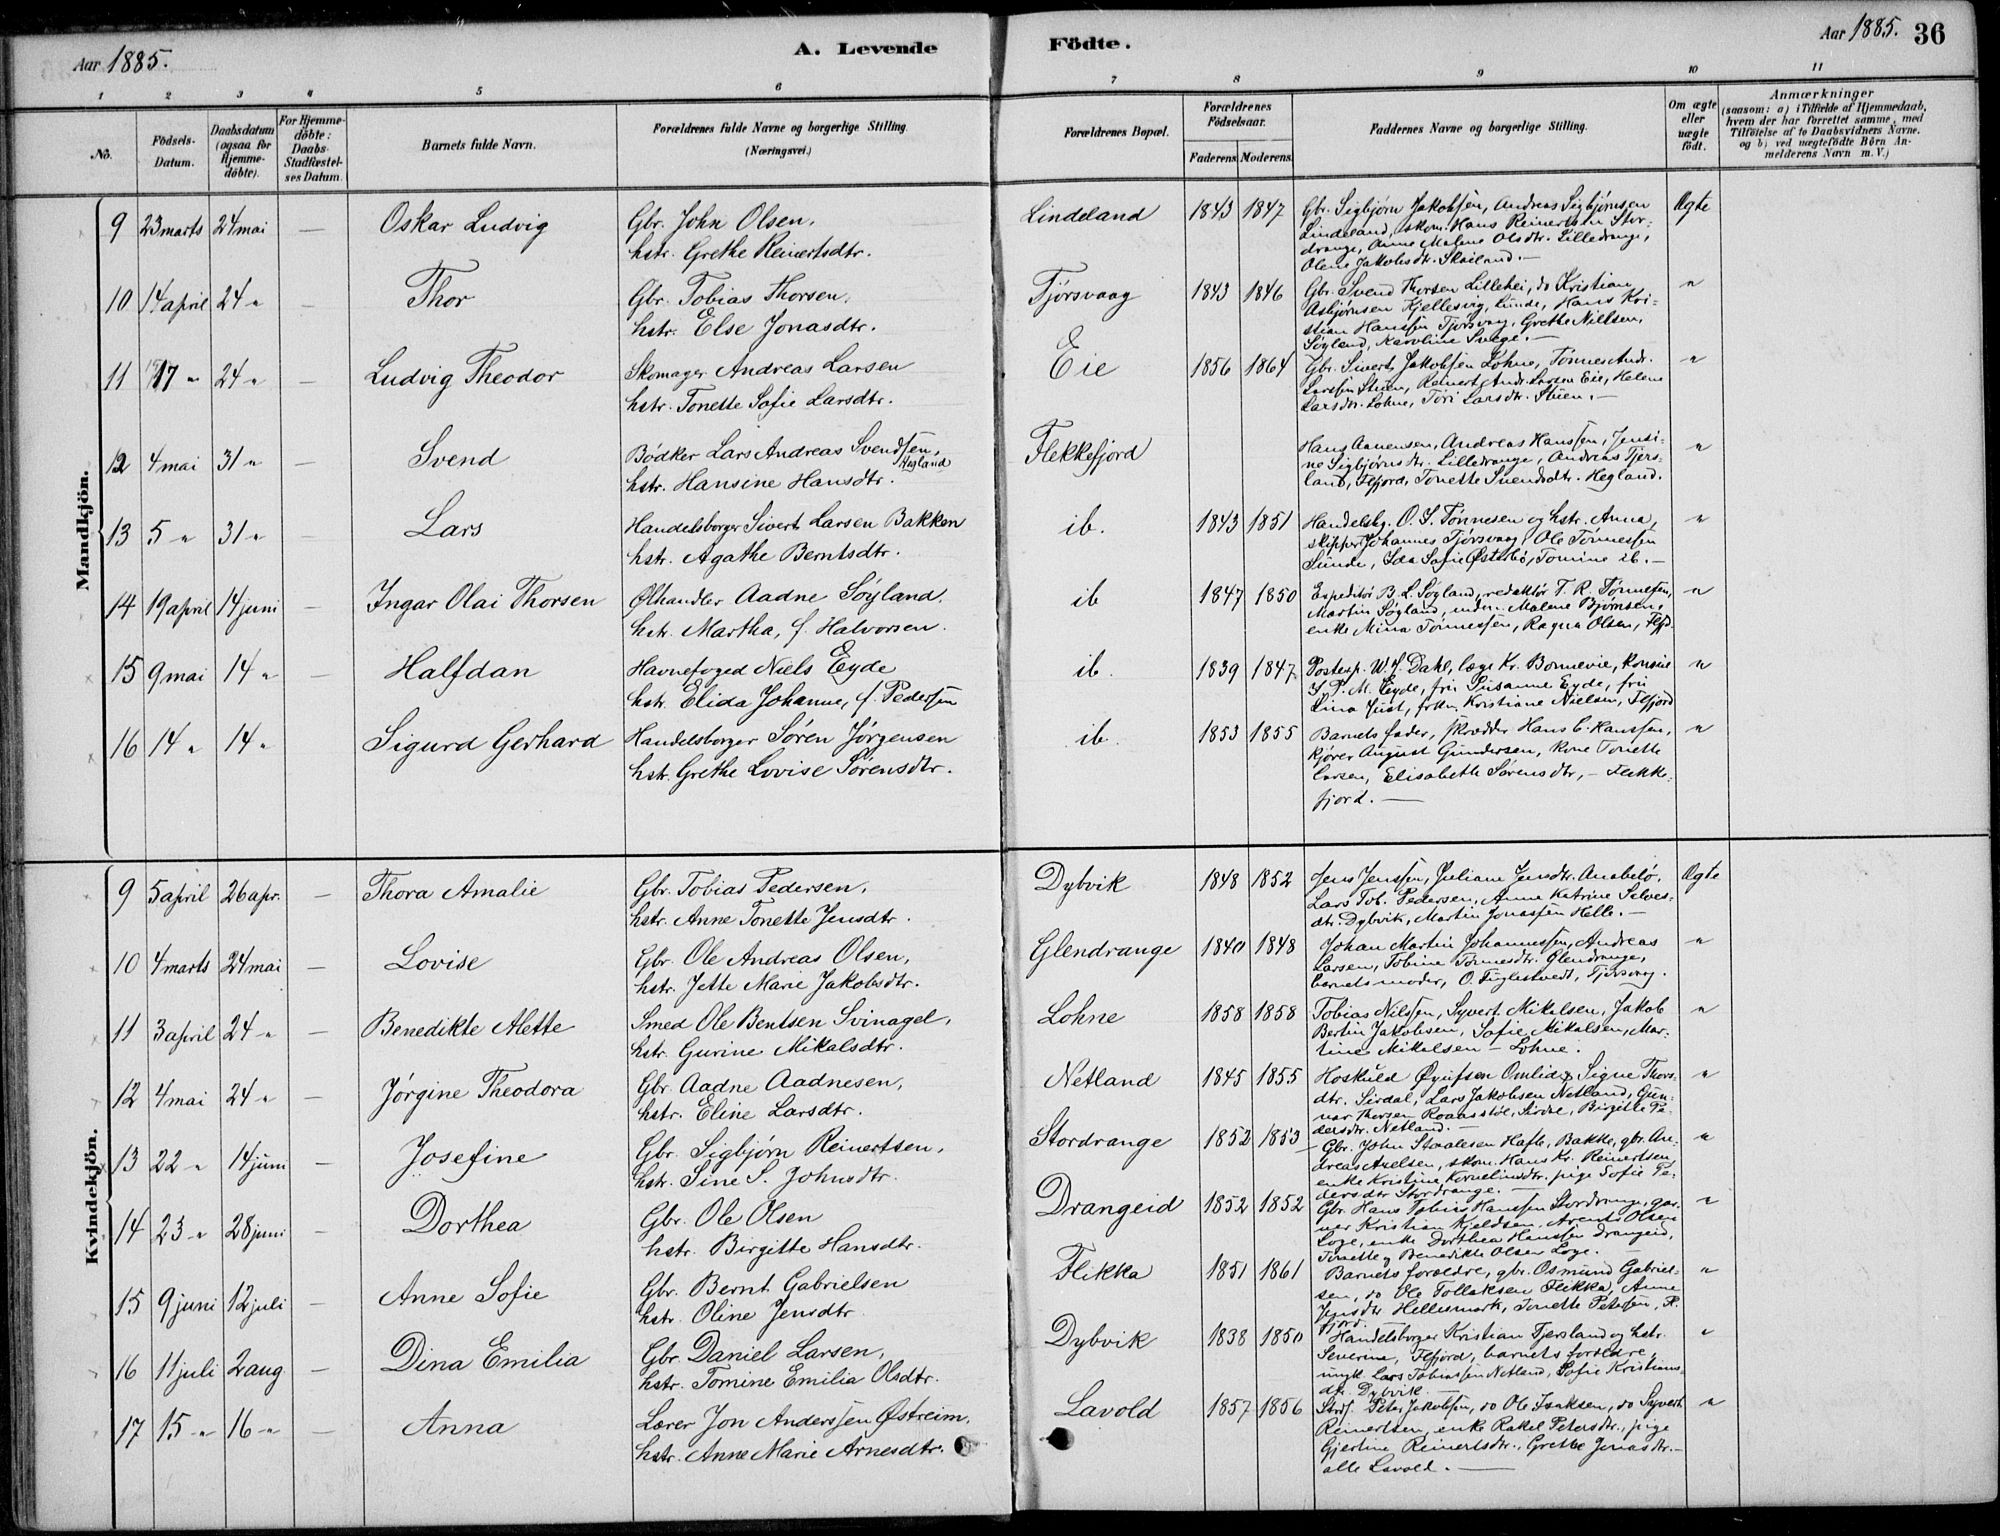 Aar 1885.
A. Levende
Födte.
Aar 1885.
36
1 2 3 4 5 6 7 8 9 10 11
No.
Födsels-Datum.
Daabsdatum (ogsaa for Hjemme-döbte).
For Hjemme-döbte: Daabs-Stadfæstel-ses Datum.
Barnets fulde Navn.
Forældrenes fulde Navne og borgerlige Stilling.
(Næringsvei.)
Forældrenes Bopæl.
Forældrenes Födselsaar.
Faderens Moderens
Faddernes Navne og borgerlige Stilling.
Om ægte eller uægte födt.
Anmærkninger
(saasom: a) i Tilfælde af Hjemmedaab,
hvem der har forrettet samme, med
Tilföielse af to Daabsvidners Navne.
og b) ved uægtefödte Börn An-
melderens Navn m. V.)
Mandkjön.
9 23 marts 24 mai — Oskar Ludvig Gbr. John Olsen, Lindeland 1843 1847 Gbr. Sigbjørn Jakobsen, Andreas Sigbjørnsen Ægte
hstr. Grethe Reinertsdtr. Lindeland, skom. Hans Reinertsen Stor-
drange, Anne Malene Olsdtr. Lilledrange,
Olene Jakobsdtr. Skailand. —
10 14 april 24 " — Thor Gbr. Tobias Thorsen, Tjørsvaag 1843 1846 Gbr. Svend Thorsen Lillehei, do Kristian "
hstr. Else Jonasdtr. Asbjørnsen Kjellesvig, Lunde, Hans Kri-
stian Hanssen Tjørsvaag, Grethe Nielsen,
Søyland, Karoline Svege. —
11 17 " 24 " — Ludvig Theodor Skomager Andreas Larsen Eie 1856 1864 Gbr. Sivert Jakobsen Lohne, Tønnes Andr. "
hstr. Tonette Sofie Larsdtr. Larssen Stuen, Reinert Andr. Larsen Eie, Helene
Larsdtr. Lohne, Tori Larsdtr. Stuen. —
12 4 mai 31 " — Svend Bødker Lars Andreas Svendsen, Hegland Flekkefjord Hans Aanensen, Andreas Hanssen, Jensi- "
hstr. Hansine Hansdtr. ne Sigbjørnsdtr. Lilledrange, Andreas Tjers-
land, Flfjord, Tonette Svendsdtr. Hegland.
13 5 " 31 " — Lars Handelsborger Sivert Larsen Bakken ib. 1843 1851 Handelsbg. O. S. Tønnesen og hstr. Anna, "
hstr. Agathe Berntsdtr. skipper Johannes Tjørsvaag, Ole Tønnessen
Sunde, Ida Sofie Østebø, Tomine ib. —
14 19 april 14 juni — Ingar Olai Thorsen Ølhandler Aadne Søyland. ib 1847 1850 Expeditør B. L. Søyland, redaktør T. R. Tønnessen, "
hstr. Martha, f. Halvorsen. Martin Søyland, Malene Bjørnsen,
enke Mina Tønnessen, Ragna Olsen, Flfjd.
15 9 mai 14 " — Halfdan Havnefoged Niels Eyde ib. 1839 1847 Postexp. W. f. Dahl, læge Kr. Bonnevie, konsul "
hstr. Elida Johanne, f. Pedersen J. P. M. Eyde, fru Susanne Eyde, fru
Lina Just, frkn. Kristiane Nielsen, Flfjord
16 14 " 14 " Sigurd Gerhard Handelsborger Søren Jørgensen ib. 1853 1855 Barnets fader, skrædder Hans C. Hanssen, "
hstr. Grethe Lovise Sørensdtr. kjører August Gundersen, kone Tonette
Larsen, Elisabeth Sørensdtr, — Flekke-
fjord. —
Kvindekjön.
9 5 april 26 apr. — Thora Amalie Gbr. Tobias Pedersen, Dybvik 1848 1852 Jens Jenssen, Juliane Jensdtr. Anabelø, Ægte
hstr. Anne Tonette Jensdtr. Lars Tob. Pedersen, Anne Katrine Salves-
dtr. Dybvik, Martin Jonassen Helle. —
10 4 marts 24 mai — Lovise Gbr. Ole Andreas Olsen, Glendrange 1840 1848 Johan Martin Johannessen, Andreas "
hstr. Jette Marie Jakobsdtr. Larsen, Tobine Tønnesdtr. Glendrange,
barnets moder, O. Fuglestvedt, Tjørsvag.
11 3 april 24 " — Benedikte Alette Smed Ole Bentsen Svinagel, Lohne 1858 1858 Tobias Nilssen, Syvert Mikelsen, Jakob "
hstr. Gurine Mikalsdtr. Bertin Jakobsen, Sofie Mikalsen, Mar-
tine Mikelsen — Lohne.
12 4 mai 24 " — Jørgine Theodora Gbr. Aadne Aadnesen, Netland 1845 1855 Hoskuld Øyufsen Omlid, Signe Thors- "
hstr. Eline Larsdtr. dtr. Sirdal, Lars Jakobsen Netland, Gun-
nar Thorsen Roaasstøl, Sirdal, Birgitte Pe-
dersdtr. Netland. —
13 22 " 14 juni — Josefine Gbr. Sigbjørn Reinertsen, Stordrange 1852 1853 Gbr. John Staalesen Hafte, Bakke, gbr. An- "
hstr. Sine S. Johnsdtr. dreas Axelsen, skom. Hans Kr. Reinertsen,
enke Kristine Korneliusdtr. pige Sofie Pe-
dersdtr Stordrange. —
14 23 " 28 juni — Dorthea Gbr. Ole Olsen Drangeid 1852 1852 Gbr. Hans Tobias Hanssen Stordrange, gar- "
hstr. Birgitte Hansdtr. ver Kristian Kjeldsen, Arents Olsen
Loge, enke Dorthea Hanssen Drangeid,
Tonette & Benedikte Olsen Loge. —
15 9 juni 12 juli — Anne Sofie Gbr. Bernt Gabrielsen Flikka 1851 1861 Barnets forældre, gbr. Osmund Gabriel- "
hstr. Oline Jensdtr. sen, do Ole Tollaksen Flikka, Anne
Jensdtr Hellesmark, Tonette Petersen, Fl.
fjord.
16 11 juli 2 aug — Dina Emilia Gbr. Daniel Larsen, Dybvik 1838 1850 Handelsborger Kristian Tjersland og hstr. "
hstr. Tomine Emilia Olsdtr. Severine, Flfjord, barnets forældre,
ungk. Lars Tobiassen Netland, Sofie Kristians-
dtr. Dybvik —
17 15 " 16 " — Anna Lærer Jon Anderssen Østreim, Lavold 1857 1856 Peter Jakobsen, do Ole Isaksen, do Syvert "
hstr. Anne Marie Arnesdtr. Reinertsen, enke Rakel Petersdtr., pige
Gjertine Reinertsdtr., Grethe Jonasdtr. —
alle Lavold. —